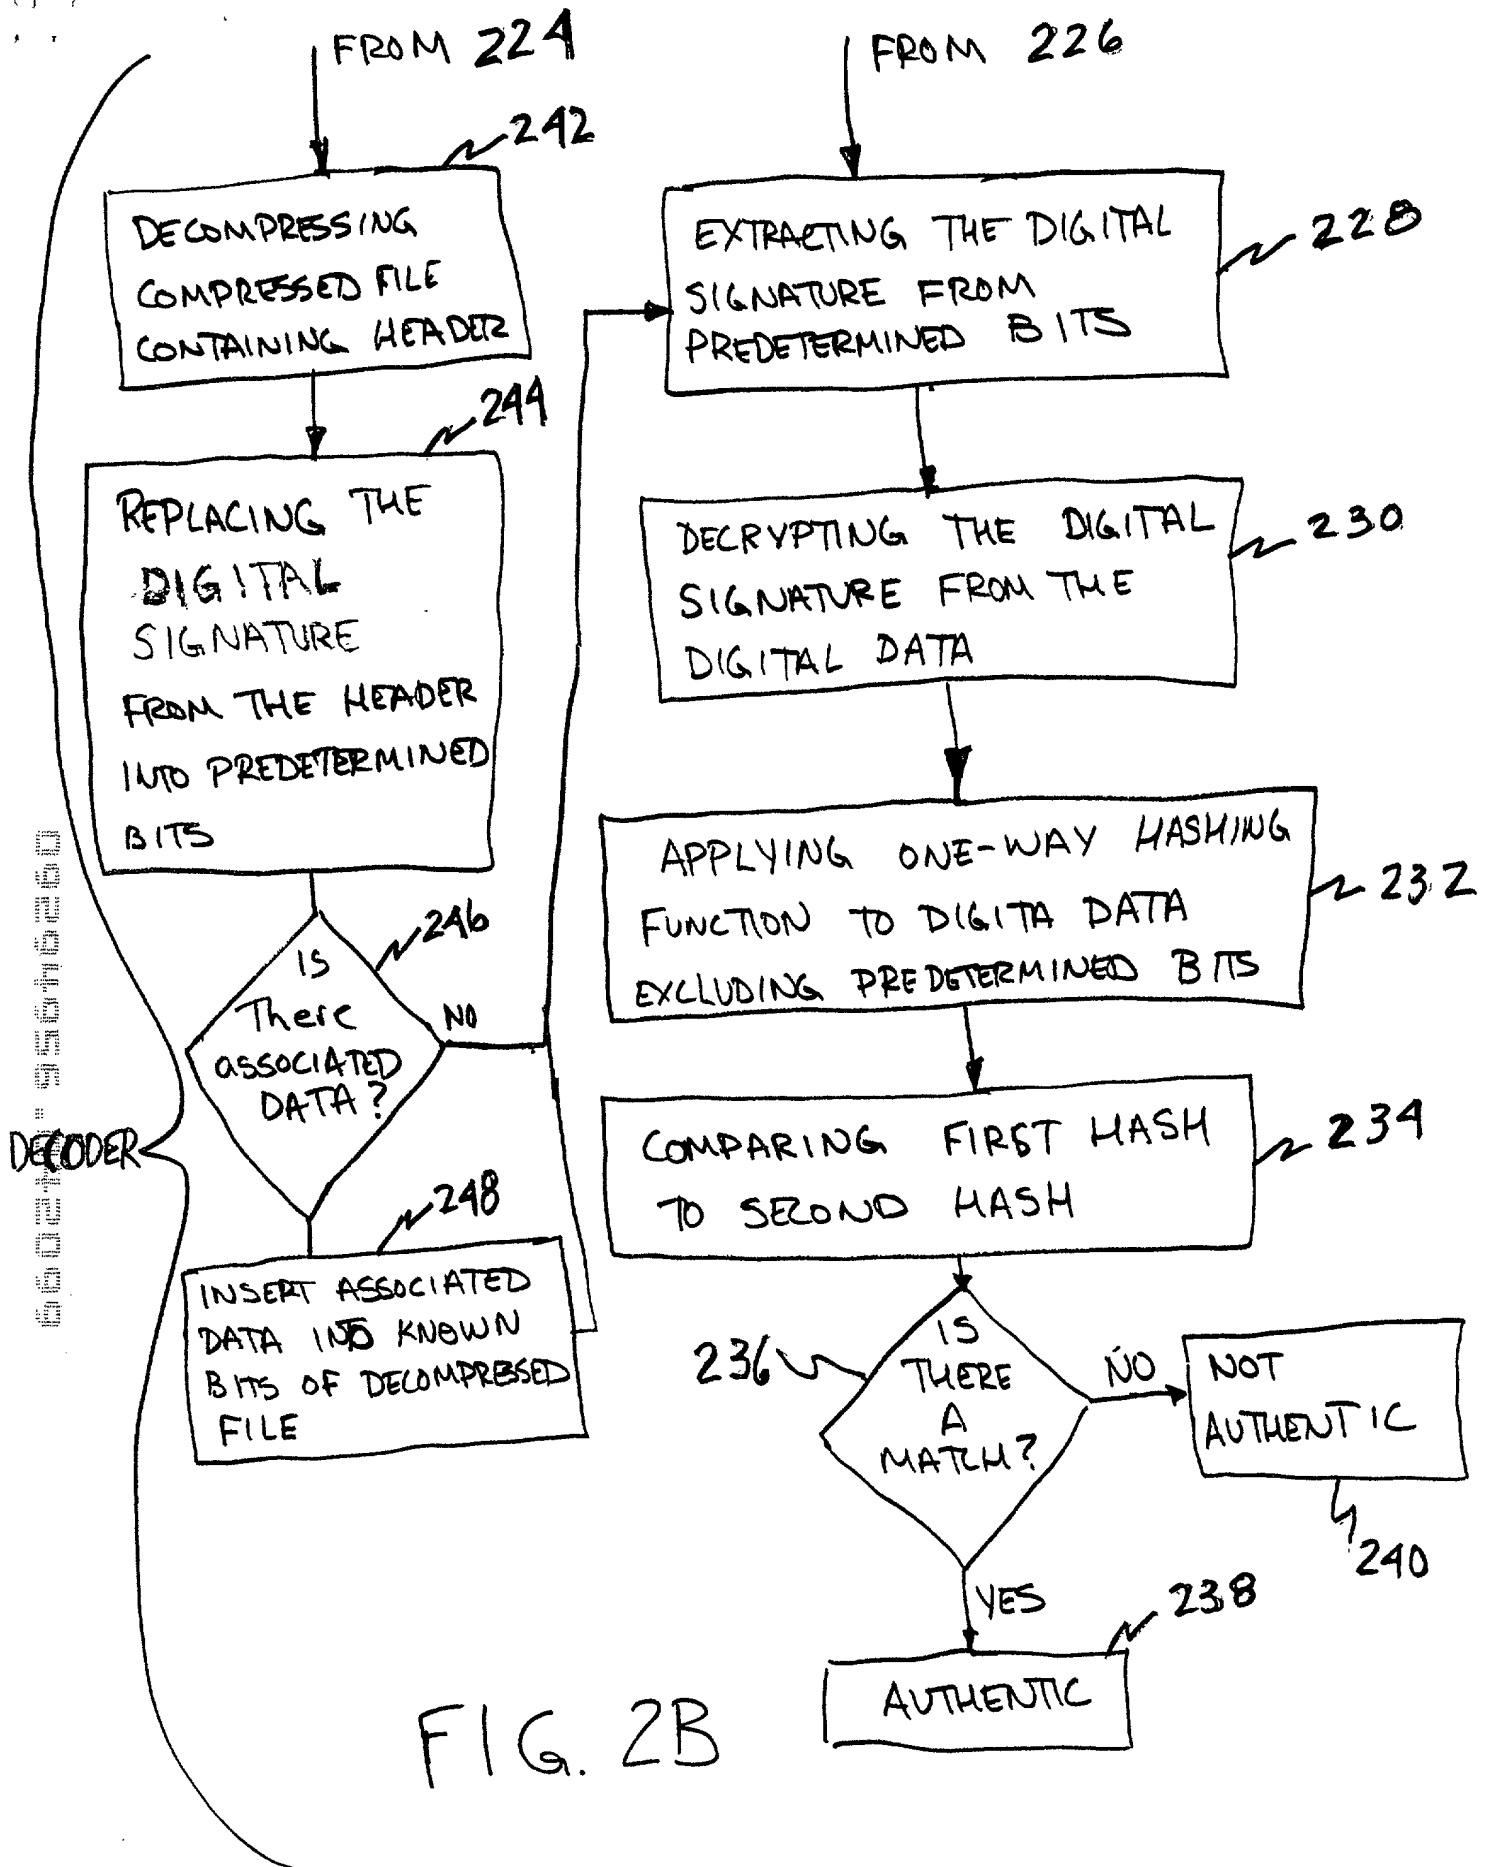 FROM 224
242
DECOMPRESSING
COMPRESSED FILE
CONTAINING HEADER
244
REPLACING THE
DIGITAL
SIGNATURE
FROM THE HEADER
INTO PREDETERMINED
BITS
246
IS
There
ASSOCIATED
DATA?
NO
248
INSERT ASSOCIATED
DATA INTO KNOWN
BITS OF DECOMPRESSED
FILE
DECODER
FROM 226
EXTRACTING THE DIGITAL
SIGNATURE FROM
PREDETERMINED BITS
228
DECRYPTING THE DIGITAL
SIGNATURE FROM THE
DIGITAL DATA
230
APPLYING ONE-WAY HASHING
FUNCTION TO DIGITA DATA
EXCLUDING PREDETERMINED BITS
232
COMPARING FIRST HASH
TO SECOND HASH
234
236
IS
THERE
A
MATCH?
NO
NOT
AUTHENTIC
240
YES
238
AUTHENTIC
FIG. 2B